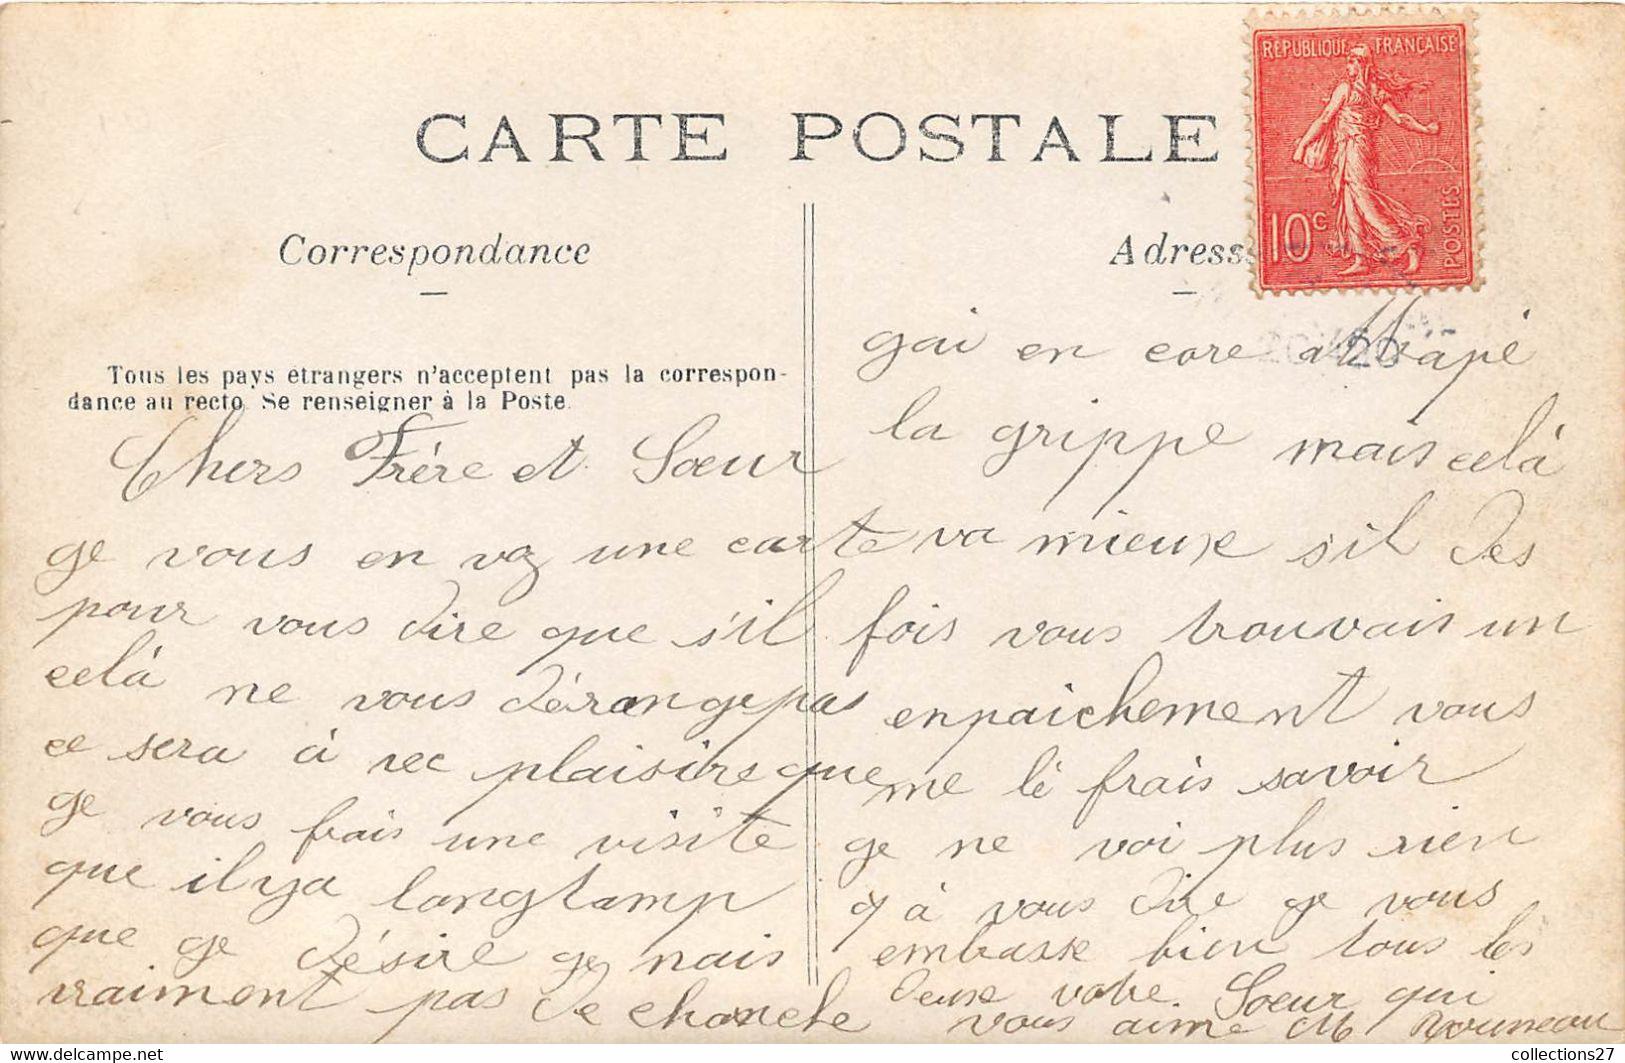 RÉPUBLIQUE FRANÇAISE
10c
POSTES
CARTE POSTALE
Correspondance
Adress
Tous les pays étrangers n'acceptent pas la correspon-
dance au recto. Se renseigner à la Poste.
Chers Frère et Sœur
ge vous en voz une carte
pour vous dire que s'il
celà ne vous dérange pas
ce sera à vec plaisire que
ge vous frais une visite
que il ya longtamp
que ge désire ge nais
vraiment pas de chanche
gai en core attrapé
la grippe mais celà
va mieuxe s'il des
fois vous trouvais un
enpaichement vous
me lé frais savoir
ge ne voi plus rien
q à vous dire ge vous
embasse bien tous les
deuxe votre Sœur qui
vous aime M Rouneau
collections27